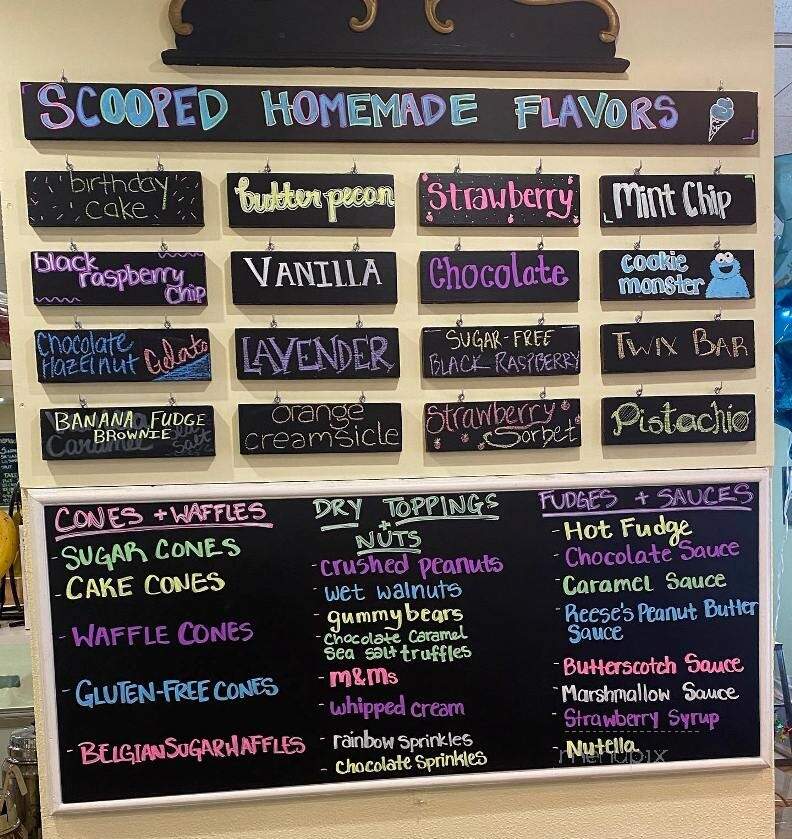 SCOOPED HOMEMADE FLAVORS
birthday
cake
butter pecan
Strawberry
Mint Chip
black
raspberry
chip
VANILLA
Chocolate
cookie
monster
Chocolate
Hazelnut Gelato
LAVENDER
SUGAR-FREE
BLACK RASPBERRY
TWIX BAR
BANANA FUDGE
BROWNIE
Caramel
orange
creamsicle
Strawberry
Sorbet
Pistachio
CONES + WAFFLES
- SUGAR CONES
- CAKE CONES
- WAFFLE CONES
- GLUTEN-FREE CONES
- BELGIAN SUGAR WAFFLES
DRY TOPPINGS
+
NUTS
- crushed peanuts
- wet walnuts
- gummy bears
- Chocolate Caramel
Sea salt truffles
- M&Ms
- whipped cream
- rainbow Sprinkles
- Chocolate Sprinkles
FUDGES + SAUCES
- Hot Fudge
- Chocolate Sauce
- Caramel Sauce
- Reese's Peanut Butter
Sauce
- Butterscotch Sauce
- Marshmallow Sauce
- Strawberry Syrup
- Nutella
menupix